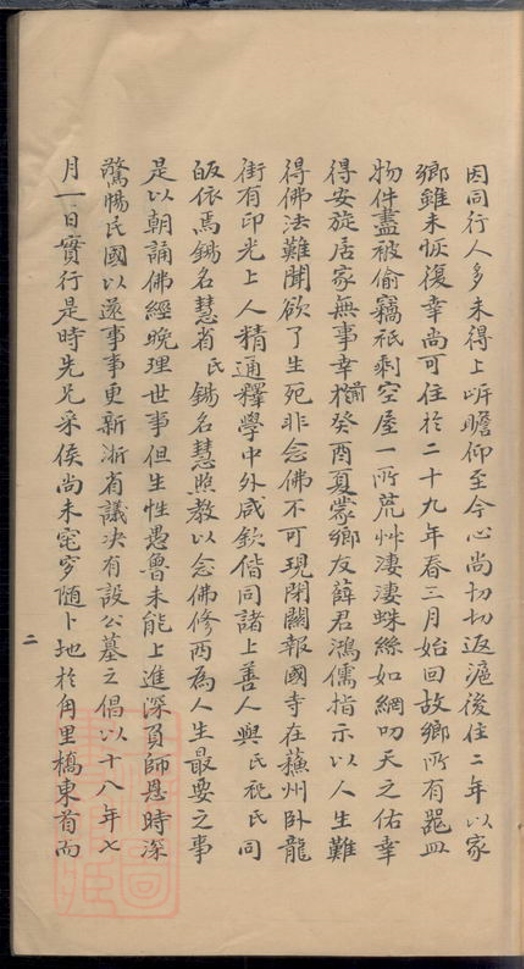 因同行人多未得上岍瞻仰至今心尚切切返滬後住二年以家
鄉雖未恢復幸尚可住於二十九年春三月始回故鄉所有器皿
物件盡被偷竊祇剩空屋一所荒艸淒淒蛛絲如網叨天之佑幸
得安旋居家無事幸於前癸酉夏蒙鄉友薛君鴻儒指示以人生難
得佛法難聞欲了生死非念佛不可現閉關報國寺在蘓州卧龍
街有印光上人精通釋學中外咸欽偕同諸上善人與氏祧氏同
皈依焉錫名慧省氏錫名慧照教以念佛修西為人生最要之事
是以朝誦佛經晚理世事但生性愚魯未能上進深負師恩時深
驚惕民國以還事事更新浙省議决有設公墓之倡以十八年七
月一日實行是時先兄采侯尚未窀穸随卜地於甪里橋東首而
二